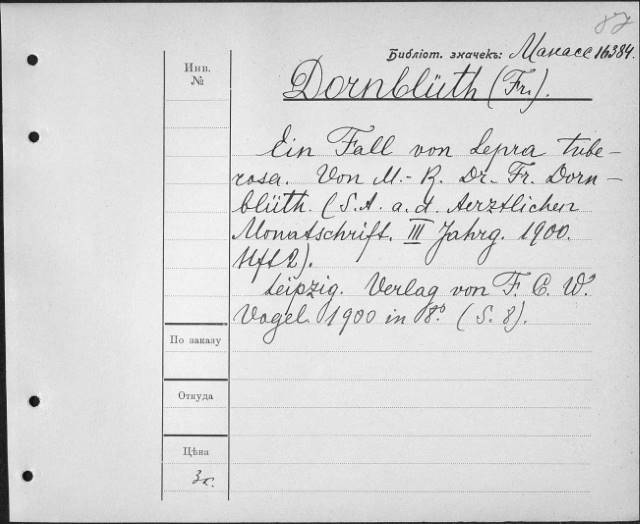 87
Библіот. значекъ: Манасс 16384.
Инв.
№
Dornblüth (Fr.).
Ein Fall von Lepra tube-
rosa. Von M.-R. Dr. Fr. Dorn-
blüth. (S.A. a. d. Aerztlichen
Monatschrift. III Jahrg. 1900.
Hft 2).
Leipzig. Verlag von F. C. W.
Vogel 1900 in 8º. (S. 8).
По заказу
Откуда
Цѣна
3к.